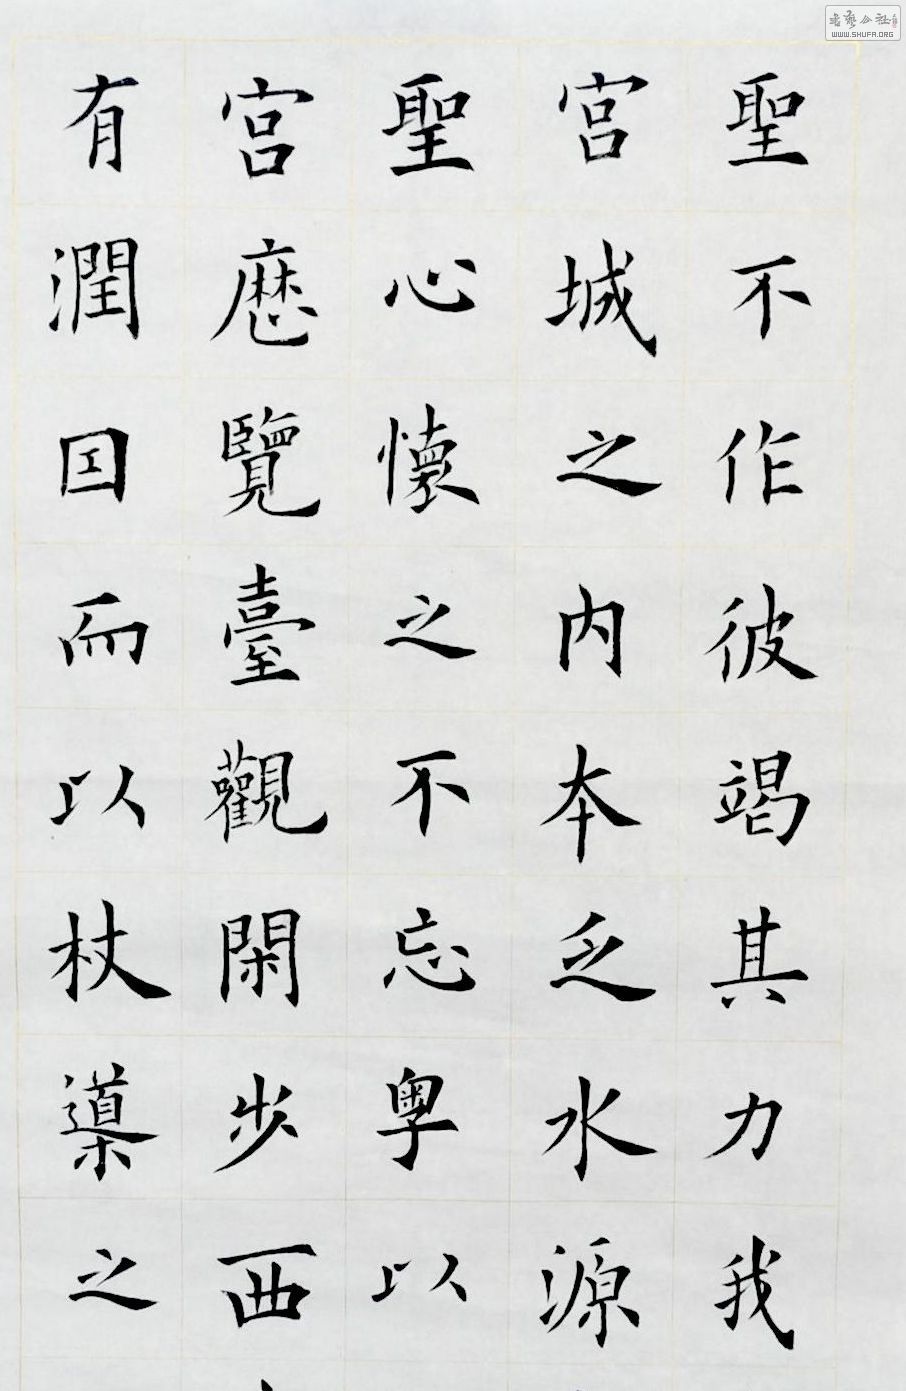 聖不作彼竭其力我
宮城之内本乏水源
聖心懷之不忘粵以
宮歷覽臺觀閑步西
有潤因而以杖導之
書藝公社
WWW.SHUFA.ORG